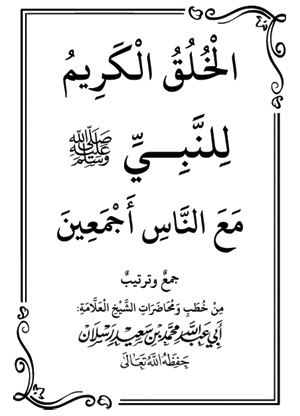 الْخُلُقُ الْكَرِيمُ
لِلنَّبِــيِّ ﷺ
مَعَ النَّاسِ أَجْمَعِينَ
جمعٌ وترتيبٌ
مِنْ خُطَبِ وَمُحَاضَرَاتِ الشَّيْخِ الْعَلَّامَةِ:
أَبِي عَبْدِ اللَّهِ مُحَمَّدِ بْنِ سَعِيدٍ رَسْلَان
حَفِظَهُ اللَّهُ تَعَالَى